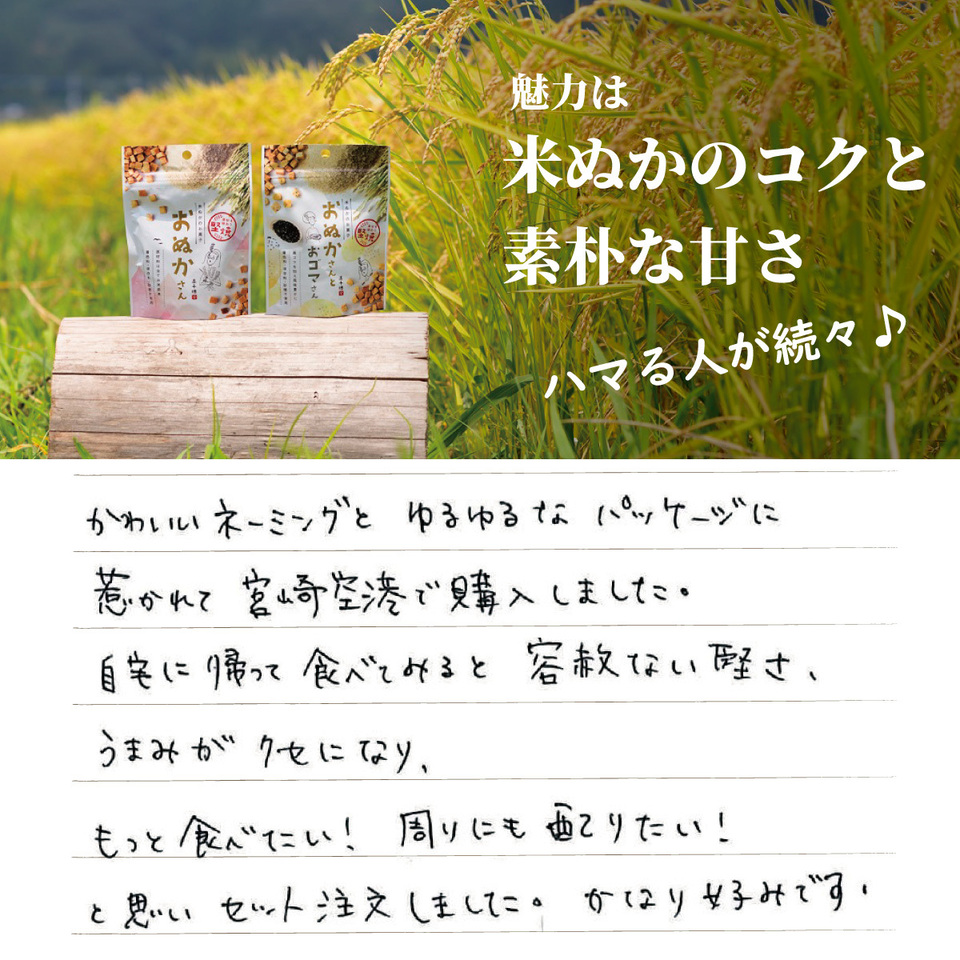 魅力は
米ぬかのコクと
素朴な甘さ
ハマる人が続々♪
おぬかさん
堅焼
おぬかさんと
おゴマさん
堅焼
かわいいネーミングと ゆるゆるな パッケージに
惹かれて 宮崎空港で購入しました。
自宅に帰って 食べてみると 容赦ない堅さ、
うまみが クセになり、
もっと食べたい! 周りにも配りたい!
と思い セット注文しました。かなり好みです。